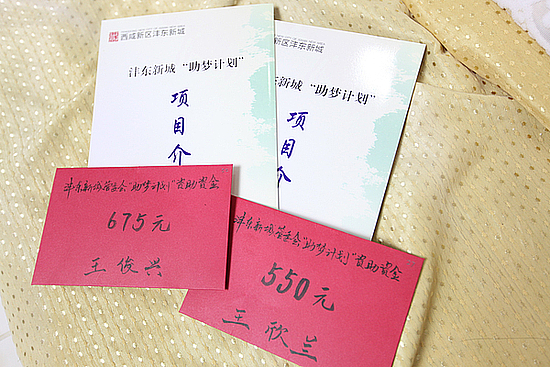 西咸新区沣东新城
沣东新城“助梦计划”
项
目
介
西咸新区沣东新城
东新城“助梦计划”
项
目
介
沣东新城管委会“助梦计划”资助资金
675元
王俊兴
沣东新城管委会“助梦计划”资助资金
550元
王欣兰